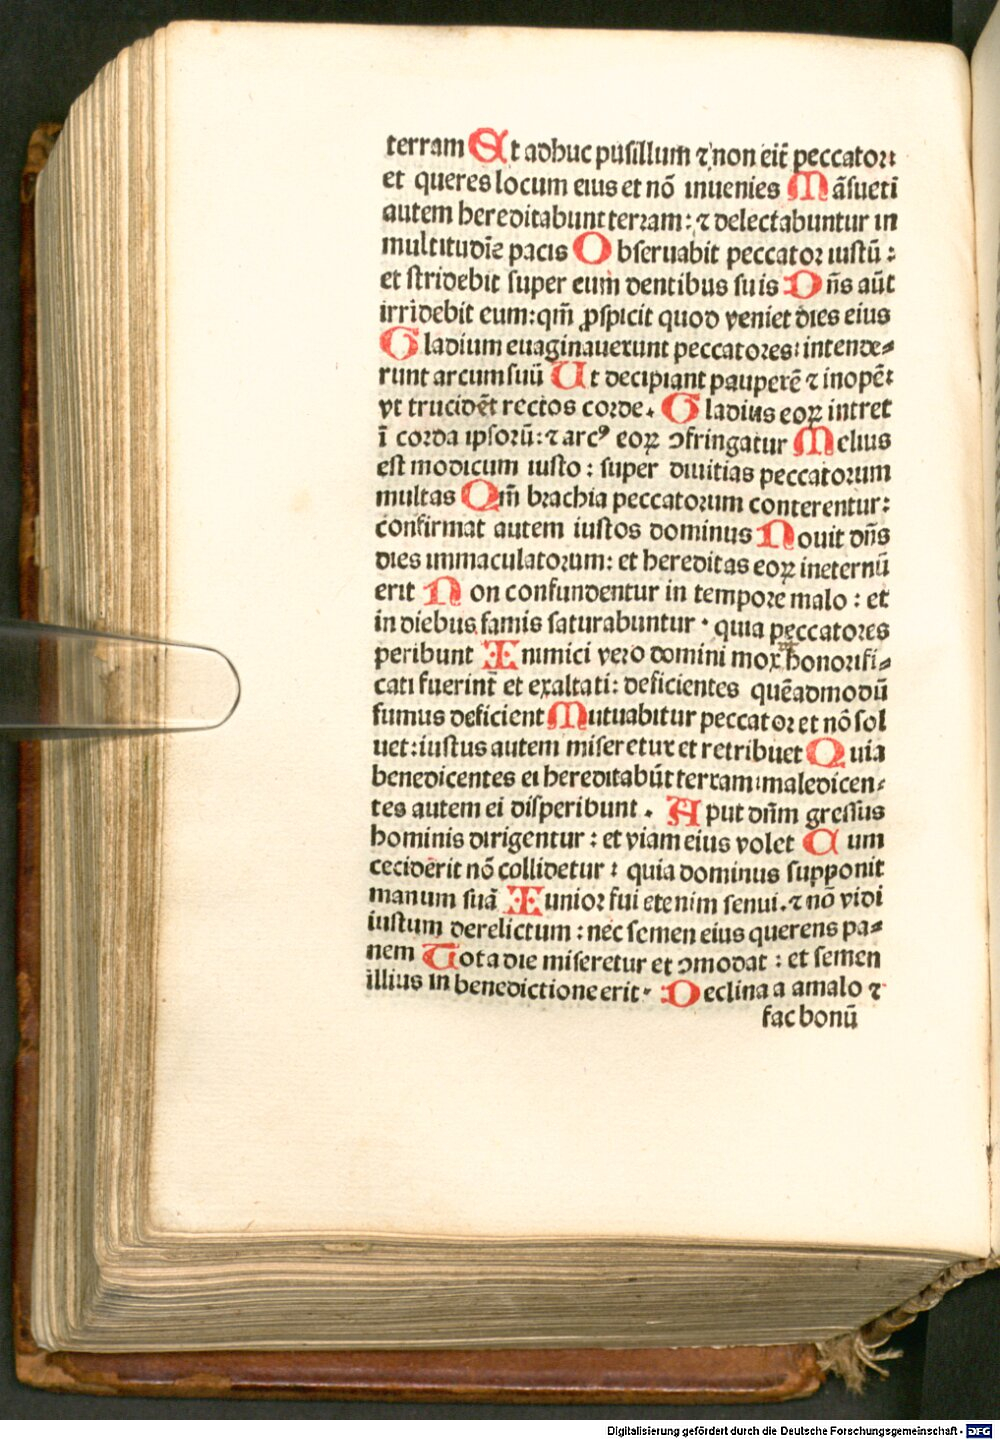 terram Et adhuc pusillum ⁊ non eit̄ peccator:
et queres locum eius et nō inuenies Māsueti
autem hereditabunt terram: ⁊ delectabuntur in
multitudīe pacis Obseruabit peccator iustū:
et stridebit super eum dentibus suis Dn̄s aūt
irridebit eum: qm̄ ꝓspicit quod veniet dies eius
Gladium euaginauerunt peccatores: intende⸗
runt arcum suū Ut decipiant pauperē ⁊ inopē:
vt trucidēt rectos corde. Gladius eoꝝ intret
ī corda ipsorū: ⁊ arcꝰ eoꝝ ↄfringatur Melius
est modicum iusto: super diuitias peccatorum
multas Qm̄ brachia peccatorum conterentur:
confirmat autem iustos dominus Nouit dn̄s
dies immaculatorum: et hereditas eoꝝ in eternū
erit Non confundentur in tempore malo: et
in diebus famis saturabuntur · quia peccatores
peribunt Inimici vero domini mox honorifi⸗
cati fuerint̄ et exaltati: deficientes quēadmodū
fumus deficient Mutuabitur peccator et nō sol
uet: iustus autem miseretur et retribuet Quia
benedicentes ei hereditabūt terram: maledicen⸗
tes autem ei disperibunt. Aput dn̄m gressus
hominis dirigentur: et viam eius volet Cum
ceciderit nō collidetur: quia dominus supponit
manum suā Iunior fui etenim senui. ⁊ nō vidi
iustum derelictum: nec semen eius querens pa⸗
nem Tota die miseretur et ↄmodat: et semen
illius in benedictione erit· Declina a amalo ⁊
fac bonū
Digitalisierung gefördert durch die Deutsche Forschungsgemeinschaft - DFG